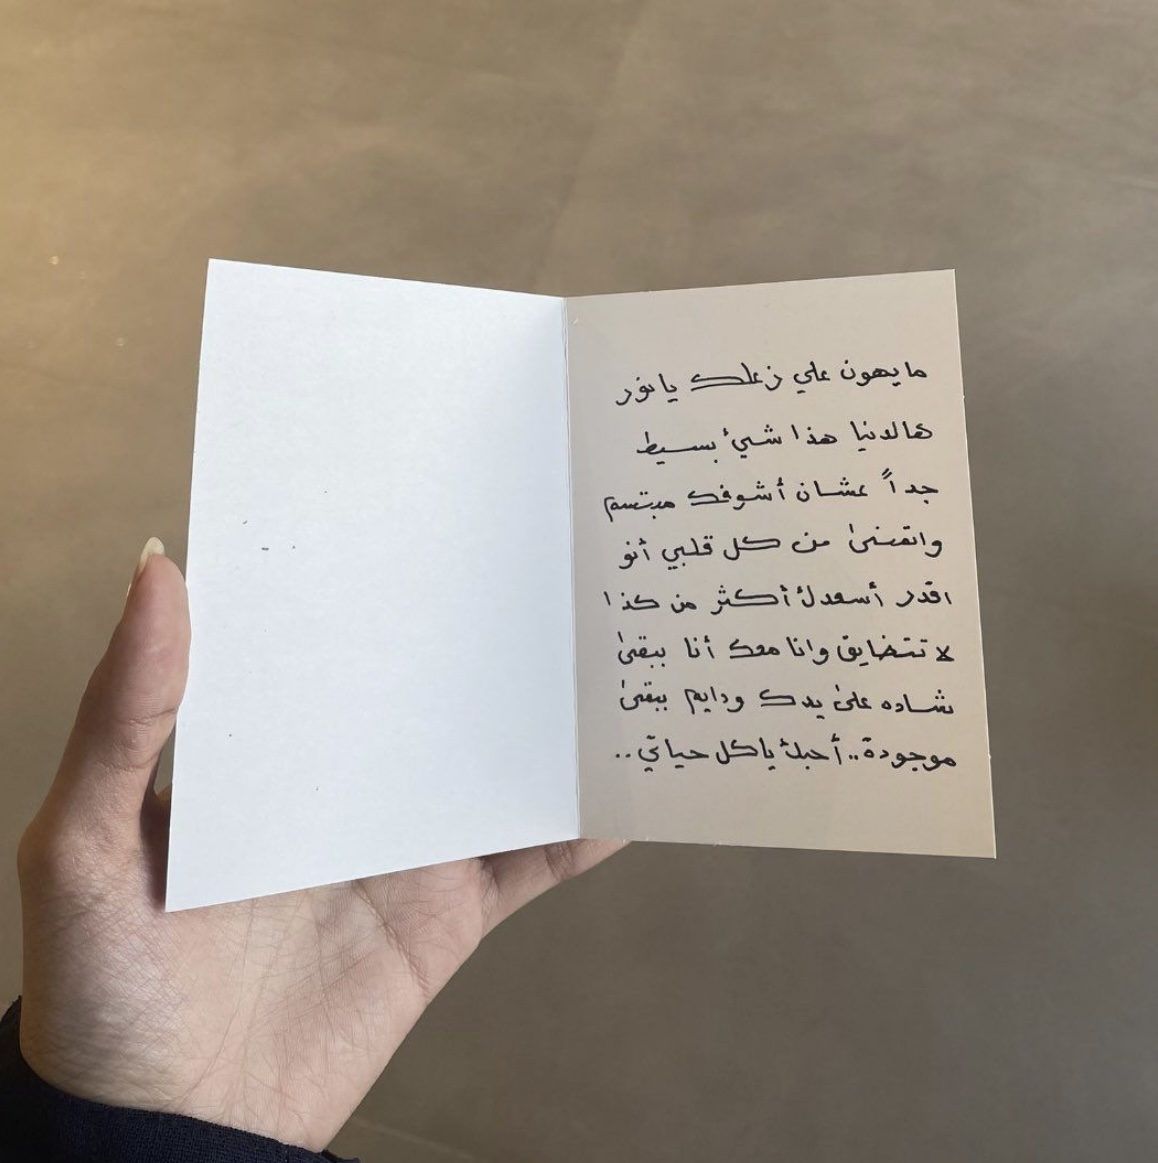 ما يهون علي زعلك يا نور
هالدنيا هذا شيء بسيط
جداً عشان أشوفك مبتسم
واتمنىٰ من كل قلبي أنو
اقدر أسعدك أكثر من كذا
لا تتضايق وانا معك أنا ببقىٰ
شاده علىٰ يدك ودايم ببقىٰ
موجودة.. أحبك ياكل حياتي..